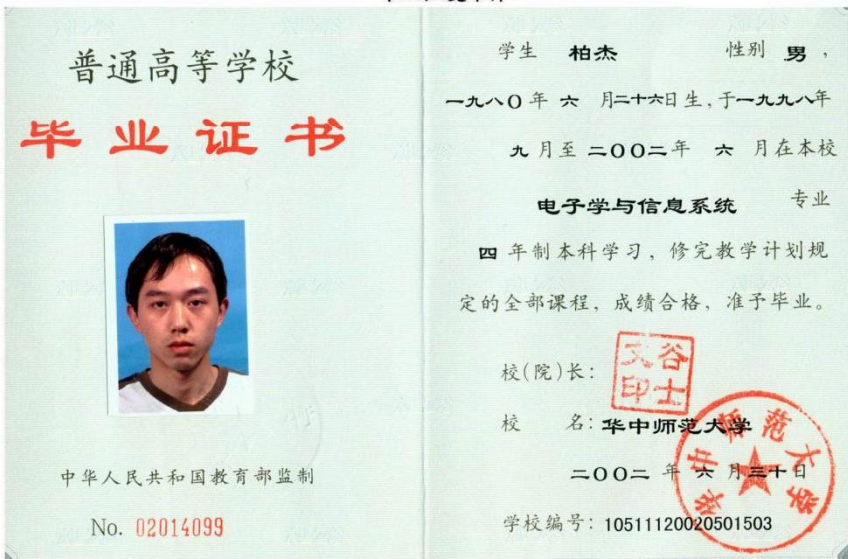 普通高等学校
毕业证书
中华人民共和国教育部监制
No. 02014099
学生 柏杰 性别 男，
一九八〇年 六 月二十六日生，于一九九八年
九 月至 二〇〇二年 六 月在本校
电子学与信息系统 专业
四 年制本科学习，修完教学计划规
定的全部课程，成绩合格，准予毕业。
校(院)长：
谷士文印
校 名：华中师范大学
二〇〇二 年 六 月三十日
华中师范大学
学校编号：10511120020501503